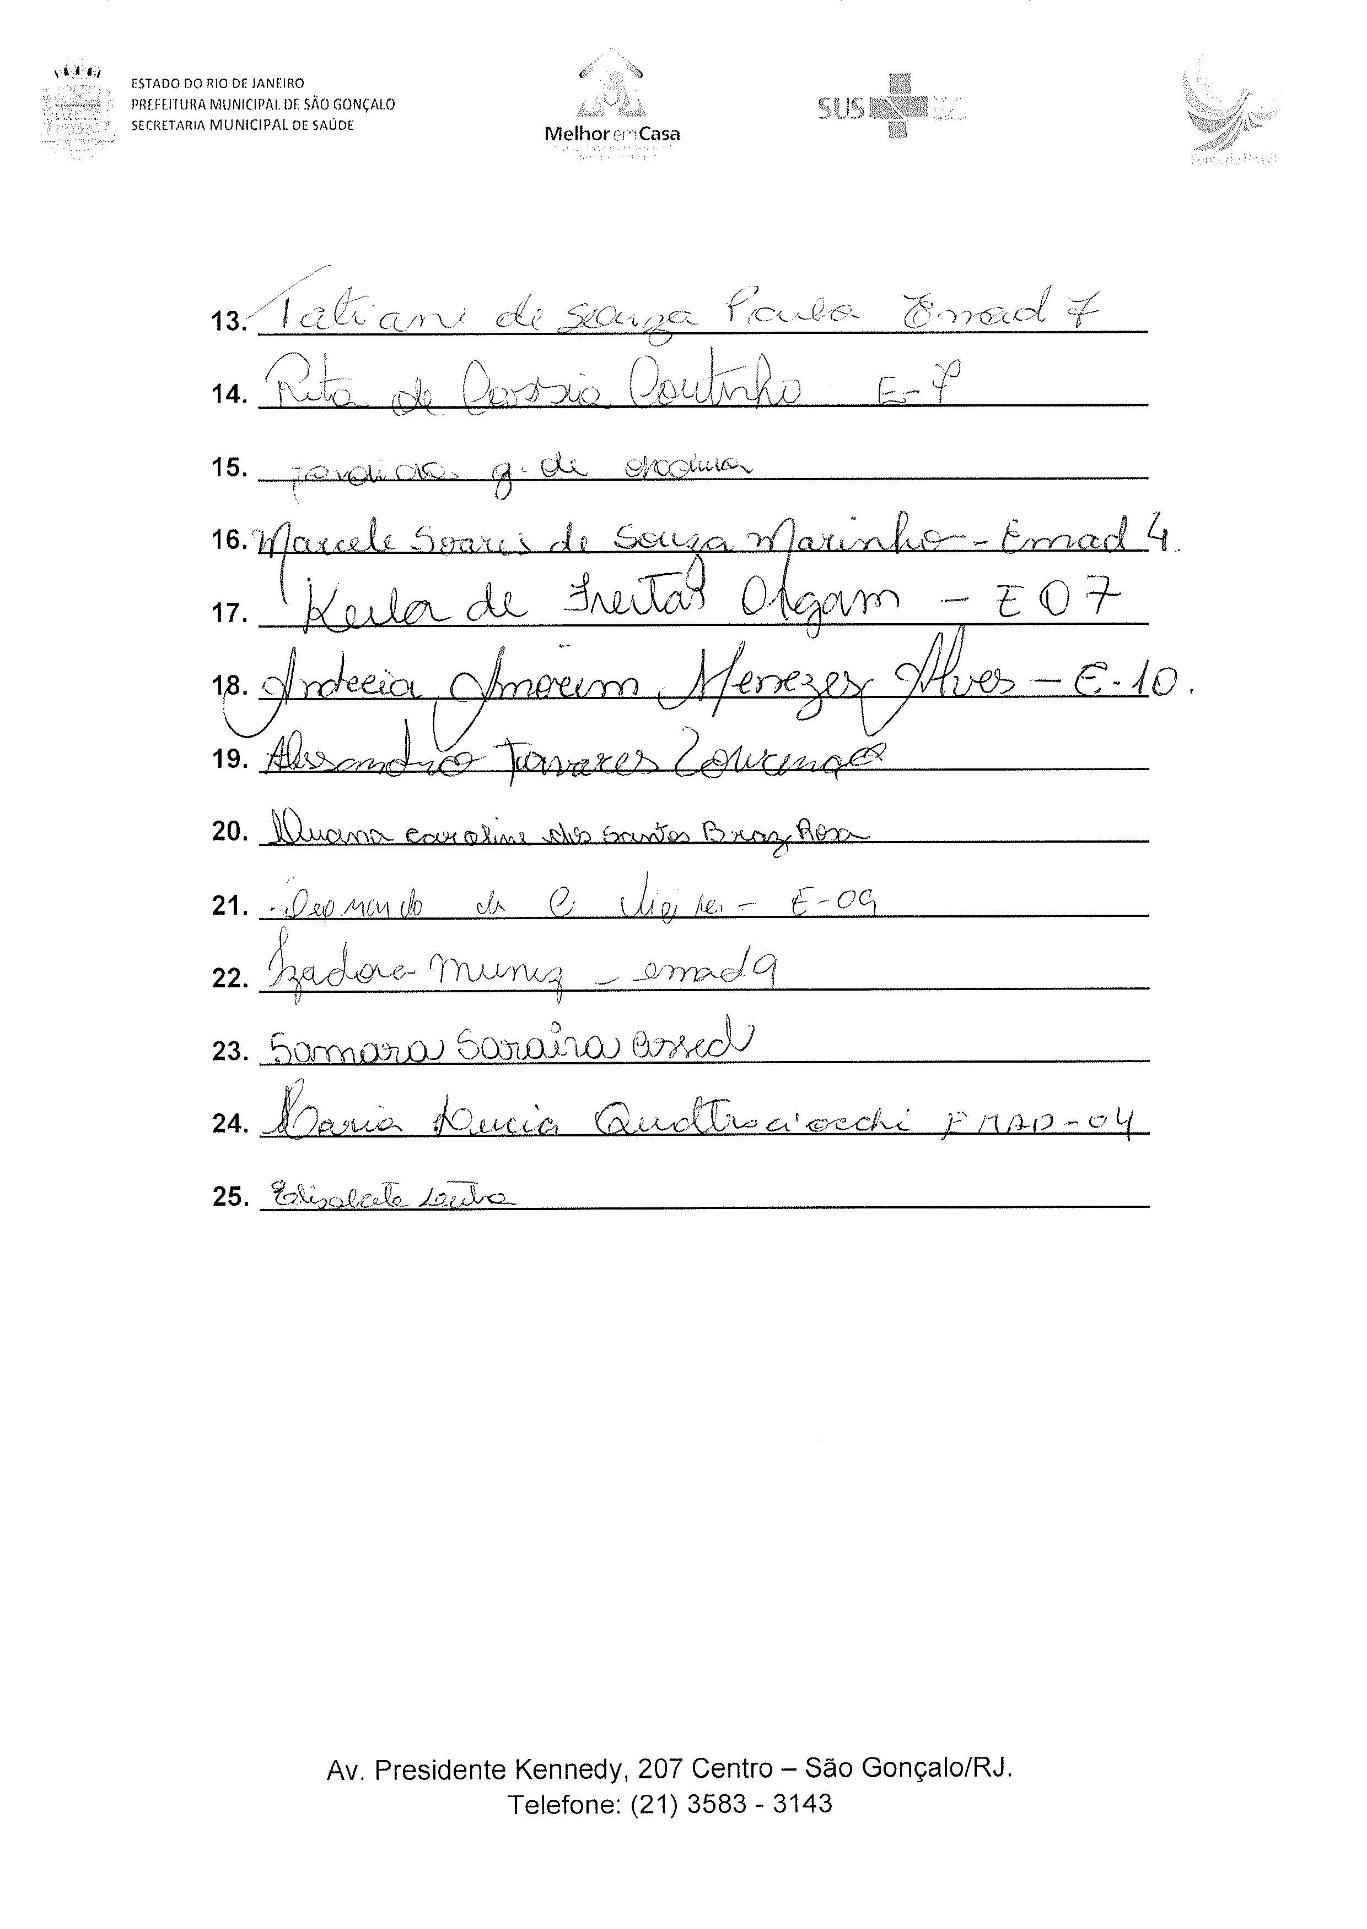 ESTADO DO RIO DE JANEIRO
PREFEITURA MUNICIPAL DE SÃO GONÇALO
SECRETARIA MUNICIPAL DE SAÚDE
Melhor em Casa
SUS
13. Tatiani de Souza Paula Emad 7
14. Rita de Cassia Coutinho E-7
15. g. de
16. Marcele Soares de Souza Marinho - Emad 4.
17. Keila de Freitas Olgam - E07
18. Andreia Amorim Menezes Alves - E-10.
19. Alessandro Tavares Lourenço
20. Caroline dos Santos Braz Rosa
21. de C - E-09
22. Izadora Muniz - emad 9
23. Samara Saraiva Assed
24. Maria Lucia Quattrociocchi EMAD-04
25. Elisabete
Av. Presidente Kennedy, 207 Centro – São Gonçalo/RJ.
Telefone: (21) 3583 - 3143